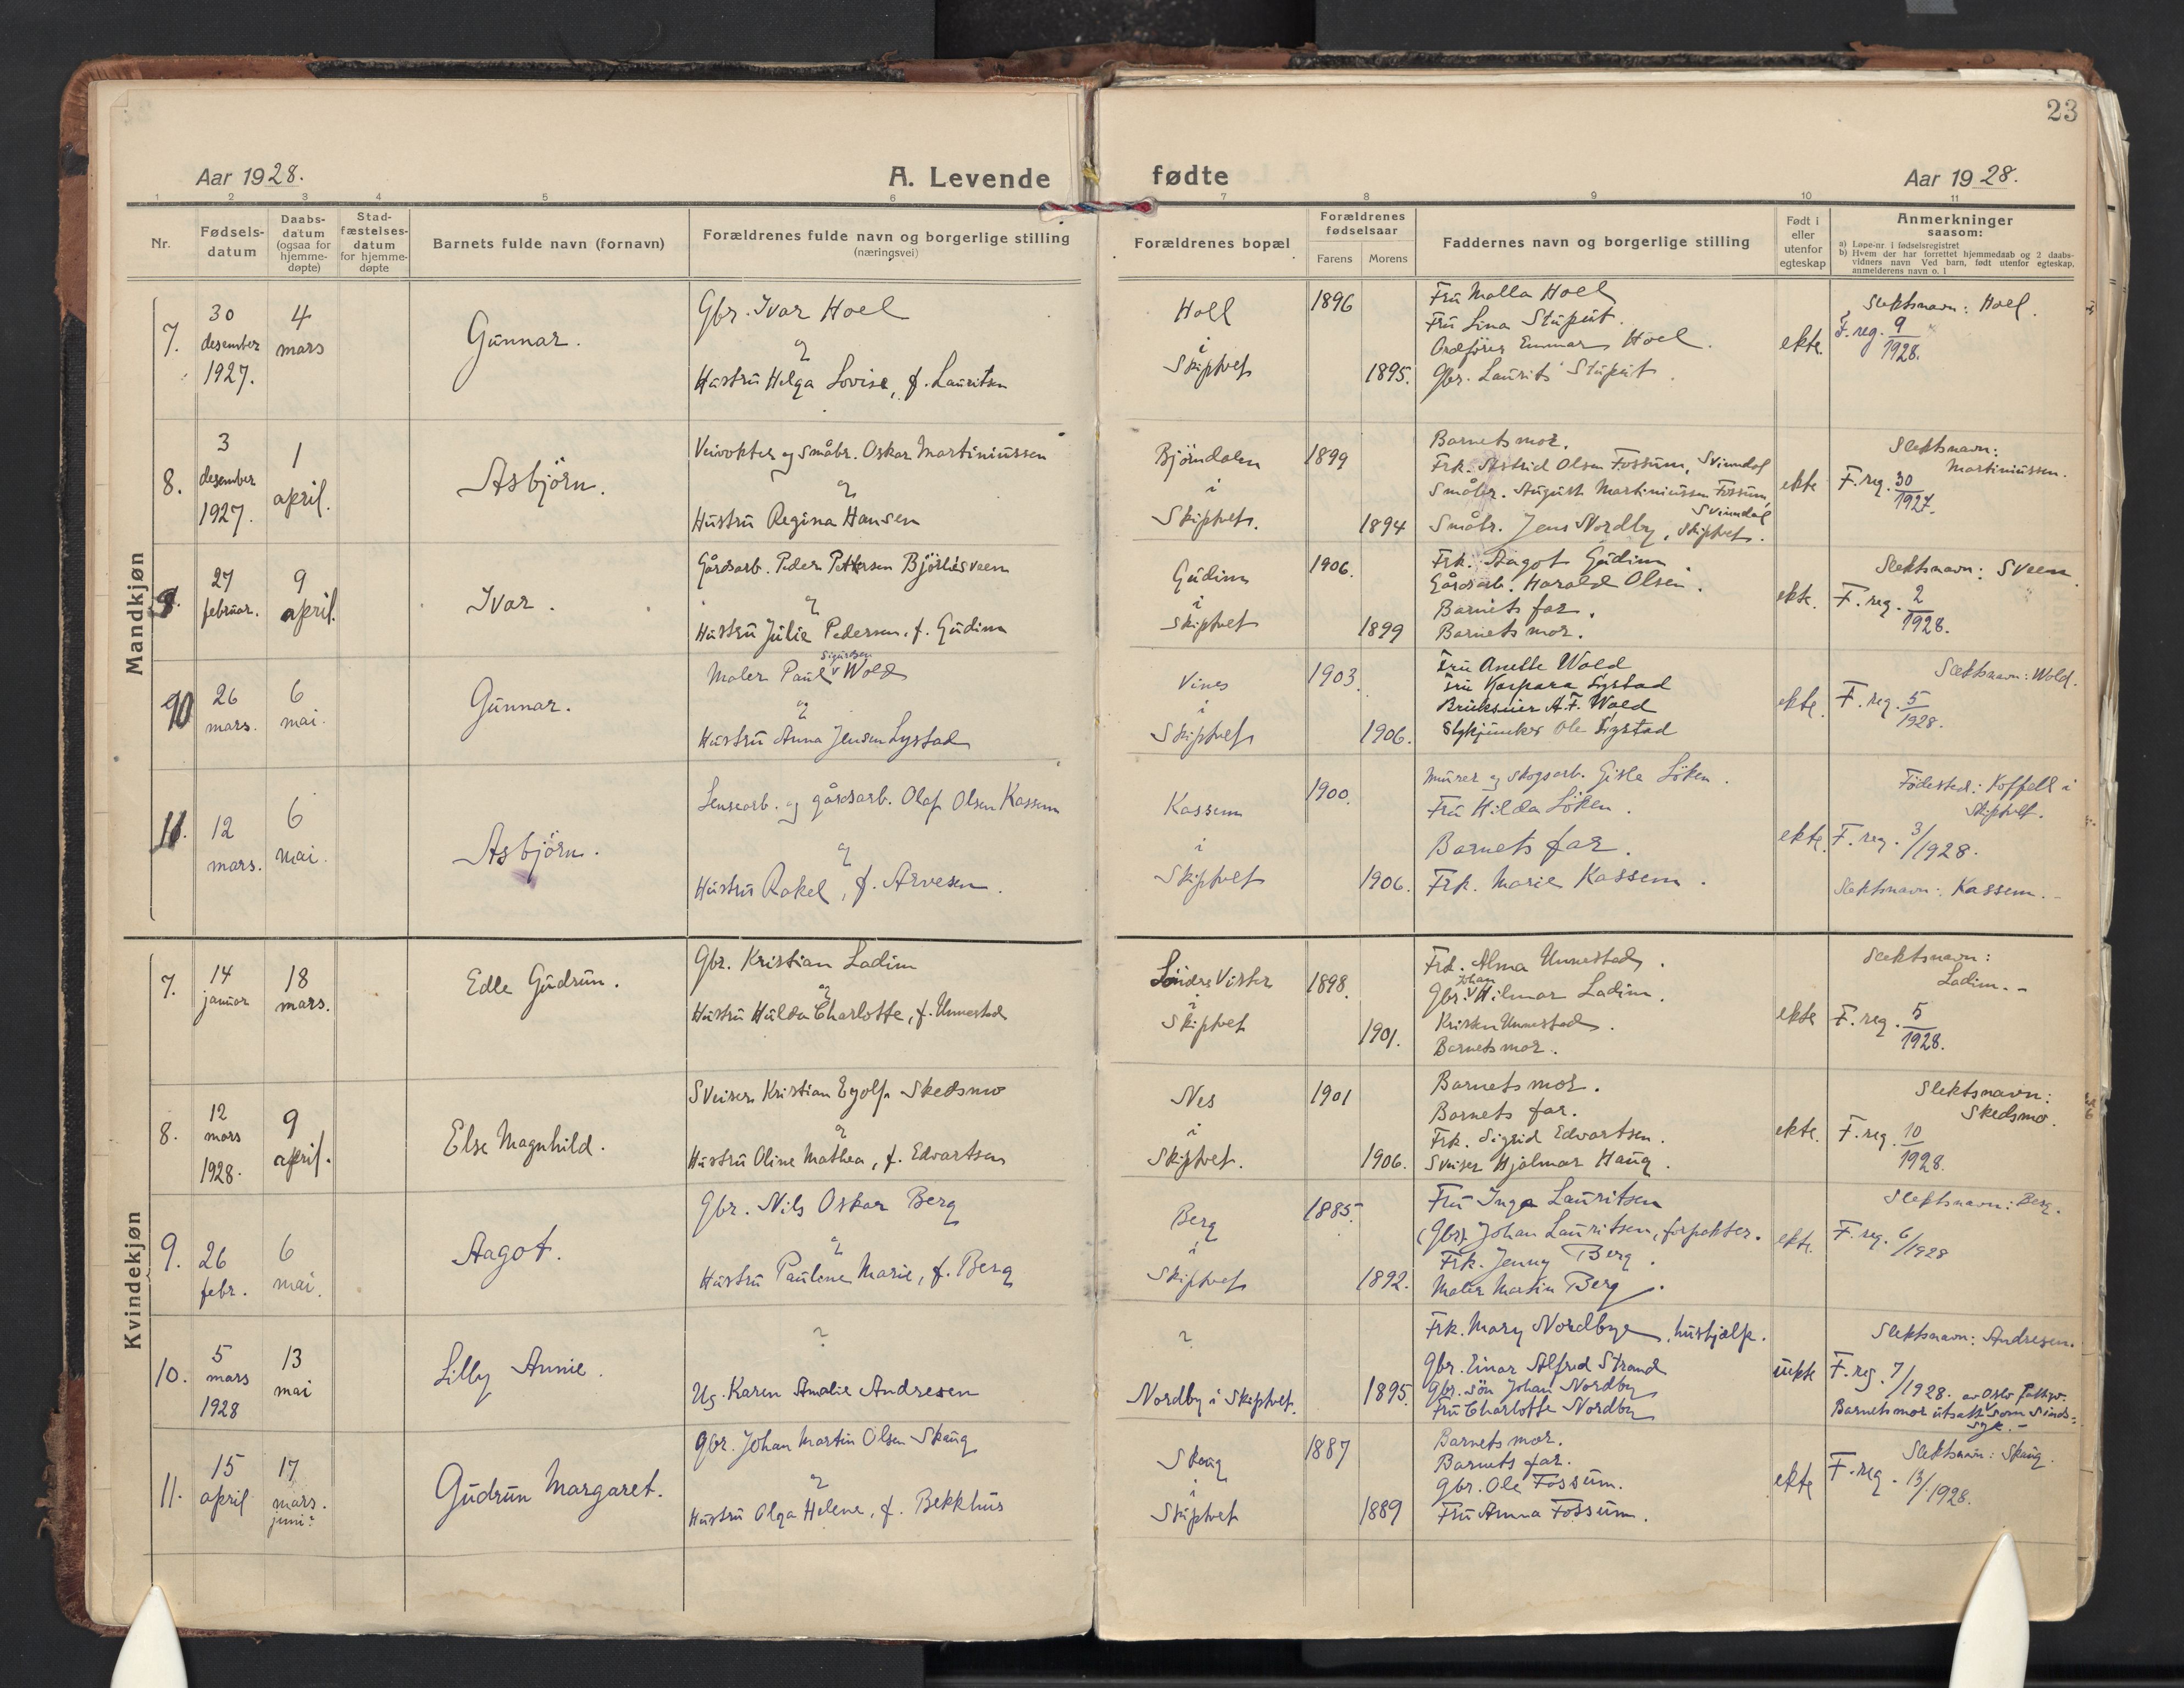 23
Aar 1928.
A. Levende
fødte
Aar 1928.
1 2 3 4 5 6 7 8 9 10 11
Nr.
Fødsels-
datum
Daabs-
datum
(ogsaa for
hjemme-
døpte)
Stad-
fæstelses-
datum
for hjemme-
døpte
Barnets fulde navn (fornavn)
Forældrenes fulde navn og borgerlige stilling
(næringsvei)
Forældrenes bopæl
Forældrenes
fødselsaar
Farens Morens
Faddernes navn og borgerlige stilling
Født i
eller
utenfor
egteskap
Anmerkninger
saasom:
a) Løpe-nr. i fødselsregistret
b) Hvem der har forrettet hjemmedaab og 2 daabs-
vidners navn Ved barn, født utenfor egteskap,
anmelderens navn o. l
Mandkjøn
7.
30
desember
1927.
4
mars
Gunnar.
Gbr. Ivar Hoel
og
Hustru Helga Lovise, f. Lauritsen
Hoel
i
Skiptvet
1896
1895.
Fru Malla Hoel
Fru Lina Stuput.
Ordfører Emmar Hoel.
Gbr. Laurits Stuput.
ekte.
Slektsnavn: Hoel.
F. reg. 9
1928.
8.
3
desember
1927.
1
april.
Asbjörn.
Veivokter og Småbr. Oskar Martiniussen
og
Hustru Regina Hansen
Björndalen
i
Skiptvet.
1899
1894
Barnets mor.
Frk. Astrid Olsen Fossum, Svinndal
Småbr. August Martiniussen Fossum,
Svinndal
Småbr. Jens Nordby, Skiptvet.
ekte
Slektsnavn:
Martiniussen.
F. reg. 30
1927.
9.
27
februar.
9
april.
Ivar.
Gårdsarb. Peder Pettersen Björlisveen
og
Hustru Julie Pedersen, f. Gudim
Gudim
i
Skiptvet
1906.
1899
Frk. Aagot Gudim.
Gårdsarb. Harald Olsen.
Barnets far.
Barnets mor.
ekte.
Slektsnavn: Sveen
F. reg. 2
1928.
10
26
mars.
6
mai.
Gunnar.
Sigurdsen
Maler Paul v Wold
og
Hustru Anna Jensen Lystad
Vines
i
Skiptvet
1903.
1906.
Fru Anette Wold
Fru Kaspara Lystad
Brukseier A.F. Wold
Ole Lystad
ekte.
Slektsnavn: Wold.
F. reg. 5
1928.
11.
12
mars.
6
mai.
Asbjörn.
Lensearb. og gårdsarb. Olaf Olsen Kassem
og
Hustru Rakel, f. Arvesen.
Kassem
i
Skiptvet
1900.
1906.
Murer og Skogsarb. Gisle Löken.
Fru Hilda Löken.
Barnets far.
Frk. Marie Kassem.
ekte.
Födested: Koffell i
Skiptvet.
F. reg. 3/1928.
Slektsnavn: Kassem.-
Kvindekjøn
7.
14
januar
18
mars.
Edle Gudrun.
Gbr. Kristian Ladim
og
Hustru Hulda Charlotte, f. Unnestad
Söndre Vister
i
Skiptvet
1898.
1901.
Frk. Alma Unnestad.
Johan
Gbr. v Hilmar Ladim.
Kristen Unnestad.
Barnets mor.
ekte
Slektsnavn:
Ladim.-
F. reg. 5
1928.
8.
12
mars
1928.
9
april.
Else Magnhild.
Sveiser Kristian Eyolf Skedsmo
og
Hustru Oline Mathea, f. Edvartsen
Nes
i
Skiptvet.
1901
1906.
Barnets mor.
Barnets far.
Frk. Sigrid Edvartsen.
Sveiser Hjalmar Haug.
ekte.
Slektsnavn:
Skedsmo.
F. reg. 10
1928.
9.
26
febr.
6
mai.
Aagot.
Gbr. Nils Oskar Berg
og
Hustru Pauline Marie, f. Berg
Berg
i
Skiptvet
1885.
1892.
Fru Inga Lauritsen
(Gbr) Johan Lauritsen, forpakter.
Frk. Jenny Berg.
Maler Martin Berg.
ekte.
Slektsnavn: Berg.
F. reg. 6/1928
10.
5
mars
1928
13
mai
Lilly Annie.
?
Ug. Karen Amalie Andresen
?
Nordby i Skiptvet.
1895
Frk. Mary Nordbye, hushjælp.
Gbr. Einar Alfred Strand
Gbr. sön Johan Nordby
Fru Charlotte Nordby
uekte
Slektsnavn: Andresen.
F. reg. 7/1928.
av Oslo fattigv.
Barnets mor utsatt v som sinds-
syk.-
11.
15
april
17
mars.
juni?
Gudrun Margaret.
Gbr. Johan Martin Olsen Skaug
og
Hustru Olga Helene, f. Bekkhus
Skaug
i
Skiptvet
1887
1889
Barnets mor.
Barnets far.
Gbr. Ole Fossum.
Fru Anna Fossum.
ekte
Slektsnavn: Skaug.
F. reg. 13/1928.